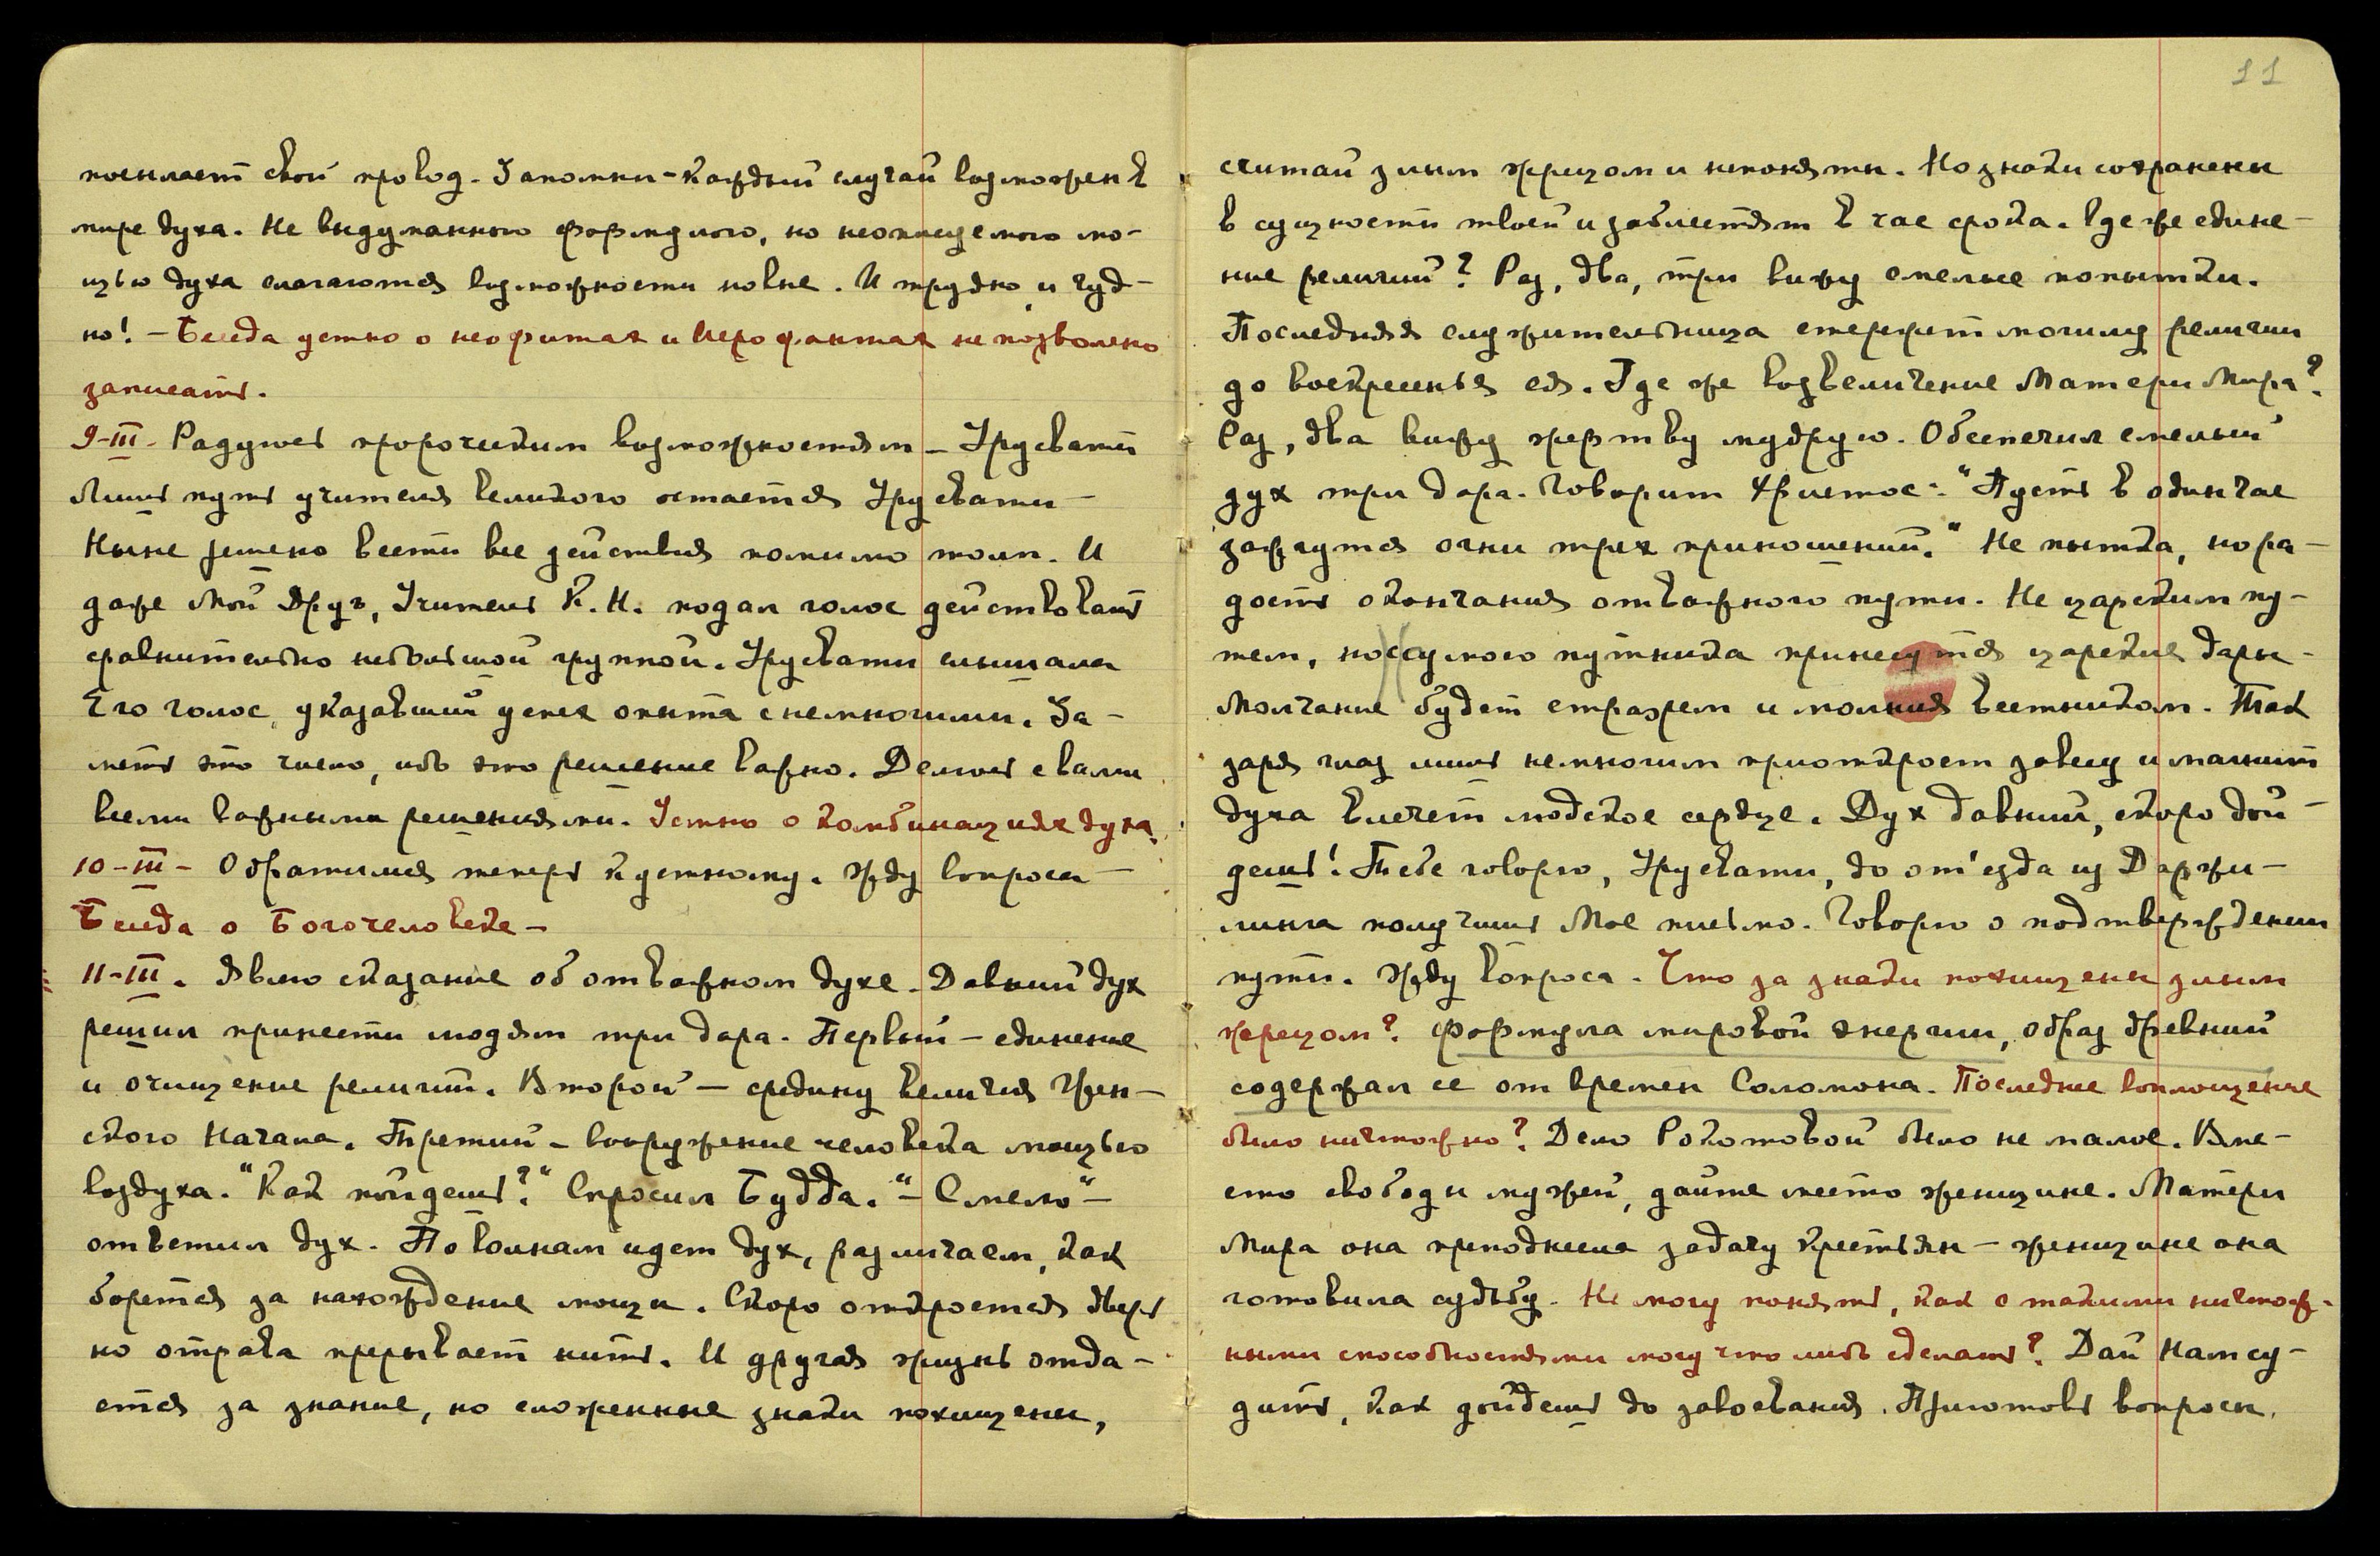 посылает свой провод. Запомни – каждый случай возможен в
мире духа. Не выдуманного формулою, но неописуемого мо-
щью духа слагаются возможности новые. И трудно, и чуд-
но! – Беседа устно о неофитах и Иерофантах не позволено
записать.
9-III. Радуюсь пророческим возможностям – Урусвати
Лишь путь учителя великого остается Урусвати –
Ныне решено вести все действия помимо толп. И
даже Мой Друг, Учитель К.Н. подал голос действовать
сравнительно небольшой группой. Урусвати слышала
Его голос, указавший успех опыта с немногими. За-
меть это число, ибо это решение важно. Делюсь с вами
всеми важными решениями. Устно о комбинациях духа.
10-III – Обратимся теперь к устному. Жду вопросы –
Беседа о Богочеловеке –
11-III. Явлю сказание об отважном духе. Давний дух
решил принести людям три дара. Первый – единение
и очищение религий. Второй – средину величия Жен-
ского Начала. Третий – вооружение человека мощью
воздуха. "Как пойдешь?" Спросил Будда. "– Смело" –
ответил дух. По волнам идет дух, различаем, как
борется за нахождение мощи. Скоро откроется дверь
но отрава прерывает нить. И другая жизнь отда-
ется за знание, но сложенные знаки похищены,
11
считай злым жрецом и непонятны. Но знаки сохранены
в сущности твоей и заблестят в час срока. Где же едине-
ние религий? Раз, два, три вижу смелые попытки.
Последняя служительница стережет могилу религии
до воскресенья ея. Где же возвеличение Матери Мира?
Раз, два вижу жертву мудрую. Обеспечил смелый
дух три дара. Говорит Христос: "Пусть в один час
зажгутся огни трех приношений." Не пытка, но ра-
дость окончания отважного пути. Не царским пу-
тем, но самого путника принесутся царские дары.
Молчание будет стражем и молния вестником. Так
заря глаз лишь немногим приоткроет завесу и магнит
духа влечет людское сердце. Дух давний, скоро дой-
дешь! Тебе говорю, Урусвати, до отъезда из Даржи-
линга получишь Мое письмо. Говорю о подтверждении
пути. Жду вопроса. Что за знаки похищены злым
жрецом? Формула мировой энергии, образ древний
содержал ее от времен Соломона. Последнее воплощение
было ничтожно? Дело Рокотовой было не малое. Вме-
сто свободы мужей, дайте место женщине. Матери
Мира она преподнесла задачу крестьян – женщине она
готовила судьбу. Не могу понять, как с такими ничтож-
ными способностями могу что либо сделать? Дай Нам су-
дить, как дойдешь до завоевания. Приготовь вопросы.